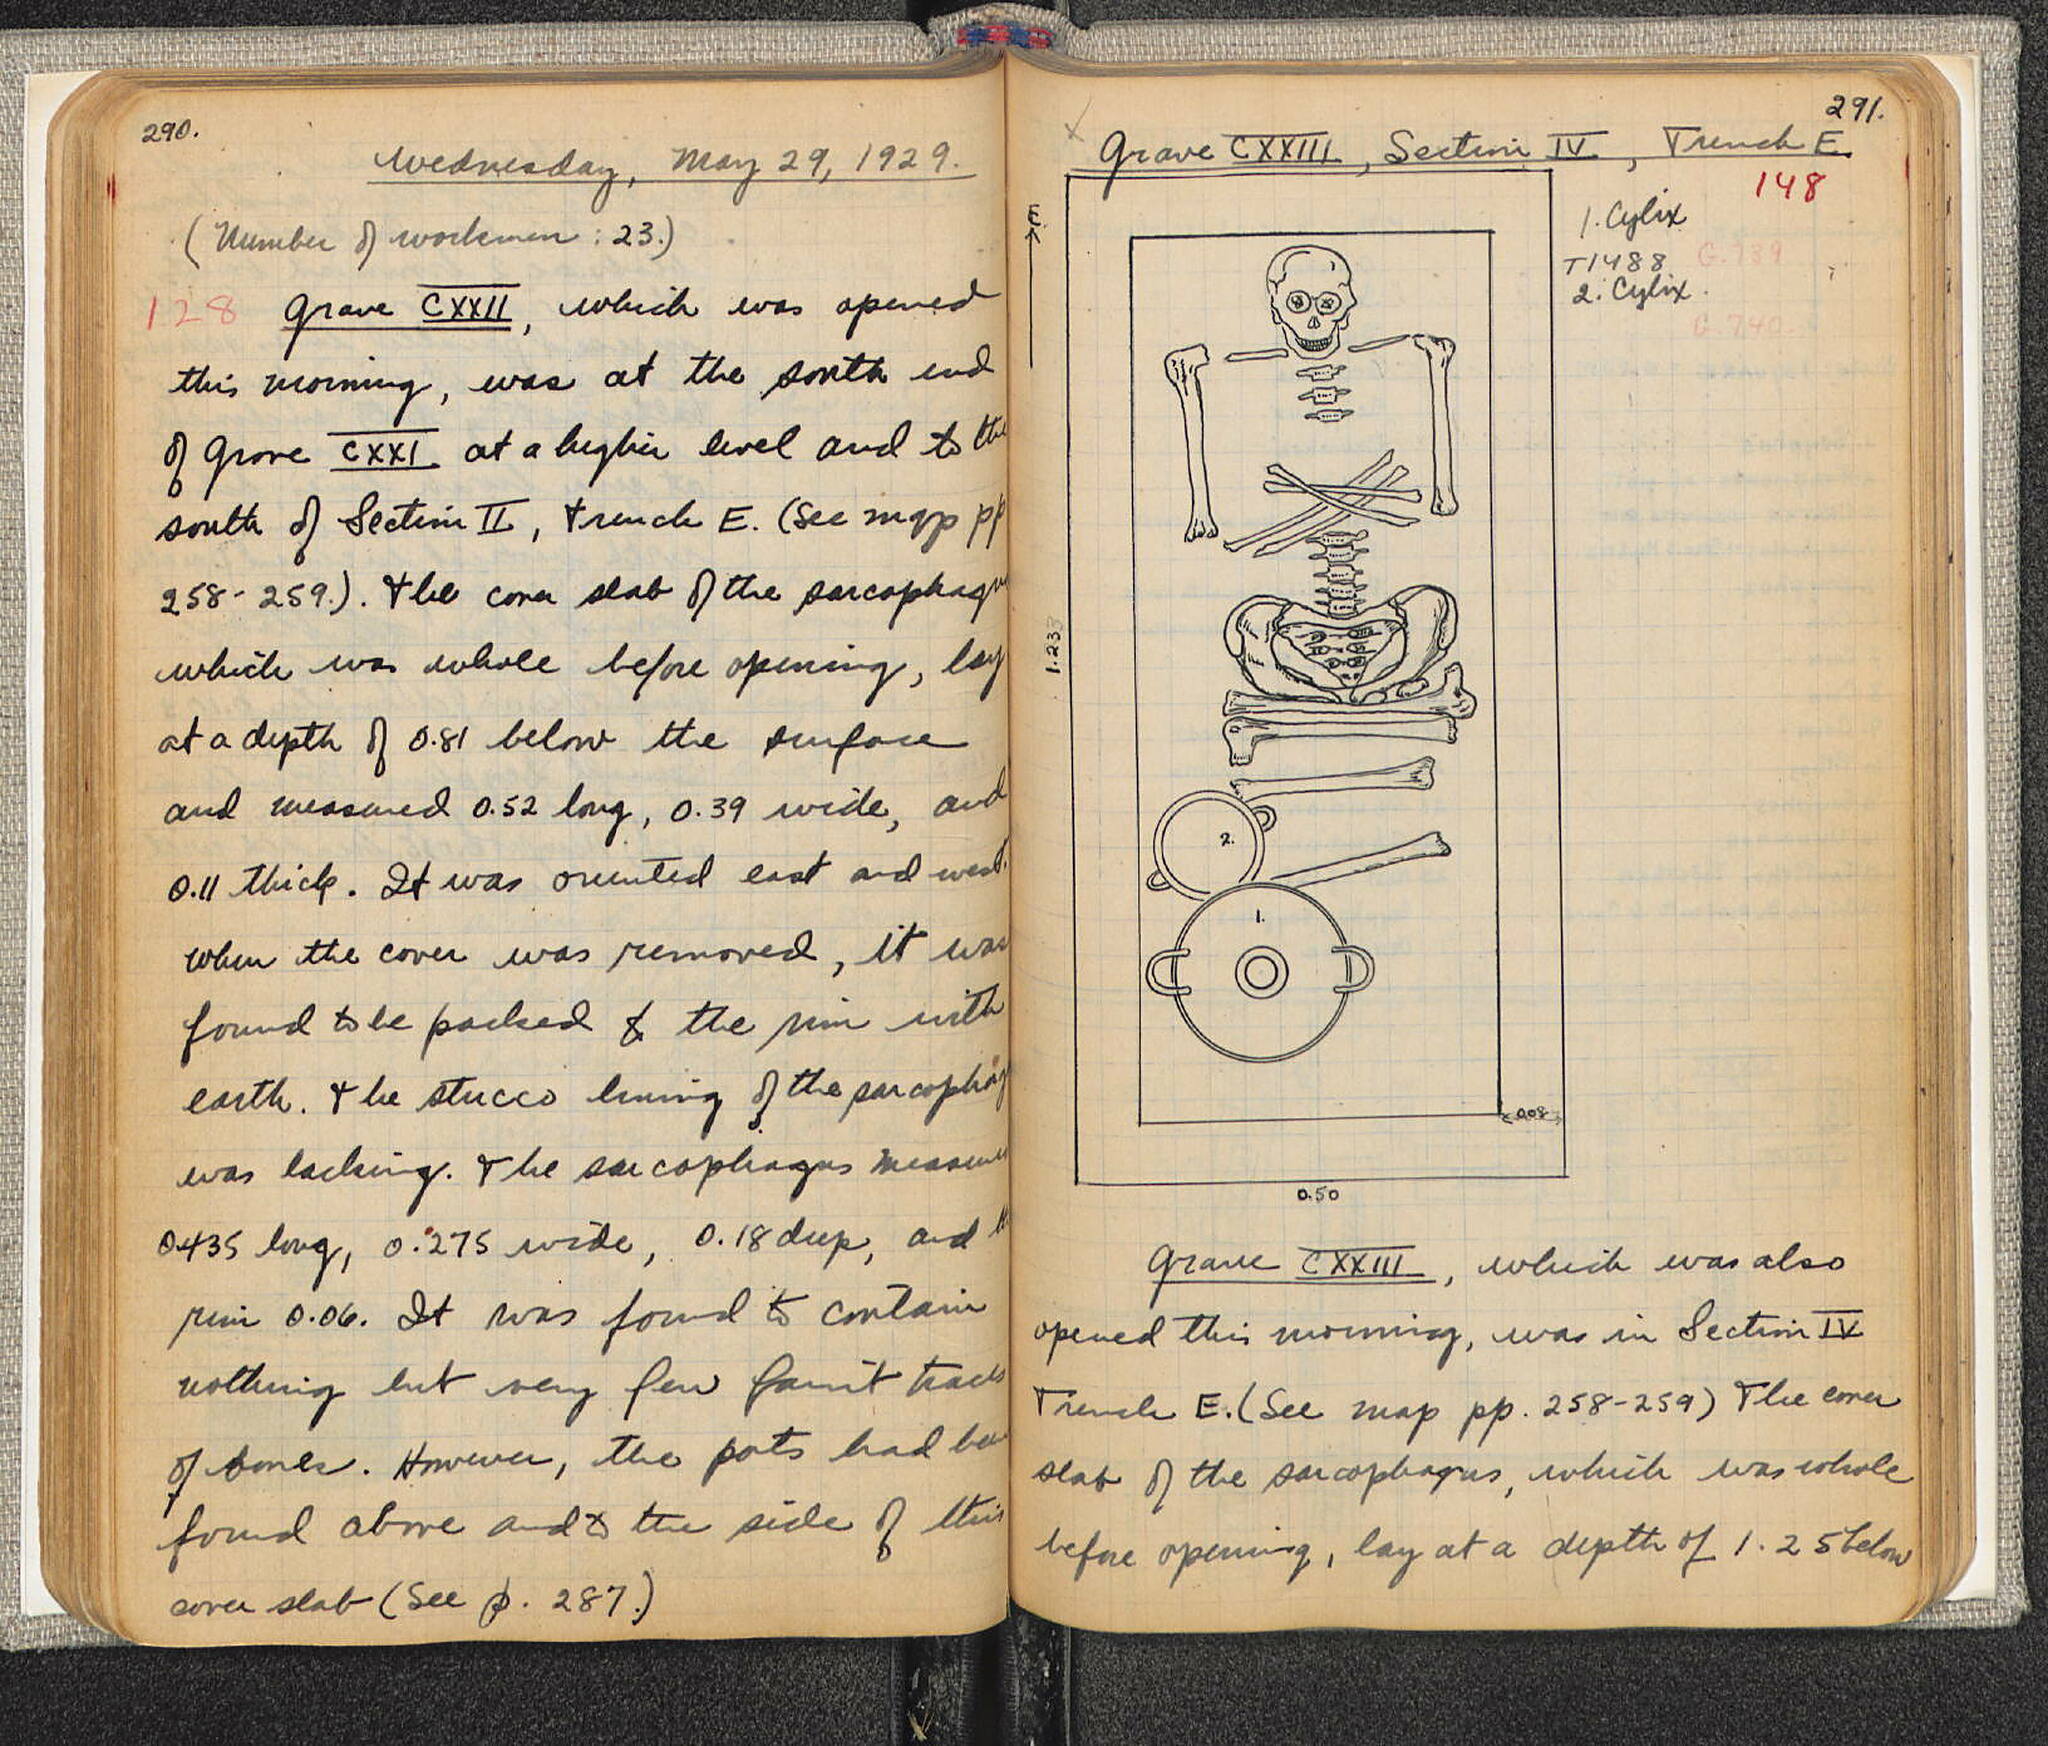 290.
Wednesday, May 29, 1929.
(Number of workmen : 23.)
128 Grave CXXII, which was opened
this morning, was at the south end
of Grave CXXI at a higher level and to the
south of Section II, Trench E. (See map pp
258-259.). The cover slab of the sarcophagu
which was whole before opening, lay
at a depth of 0.81 below the surface
and measured 0.52 long, 0.39 wide, and
0.11 thick. It was oriented east and west.
When the cover was removed, it was
found to be packed to the rim with
earth. The stucco lining of the sarcophag
was lacking. The sarcophagus measures
0.435 long, 0.275 wide, 0.18 deep, and
rim 0.06. It was found to contain
nothing but very few faint traces
of bones. However, the pots had been
found above and to the side of this
cover slab (See p. 287.)
291.
Grave CXXIII, Section IV, Trench E
148
1. Cylix
T1488 G.739
2. Cylix.
G.740.
E.
1.233
2.
1.
0.08
0.50
Grave CXXIII, which was also
opened this morning, was in Section IV
Trench E. (See map pp. 258-259) The cover
slab of the sarcophagus, which was whole
before opening, lay at a depth of 1.25 below